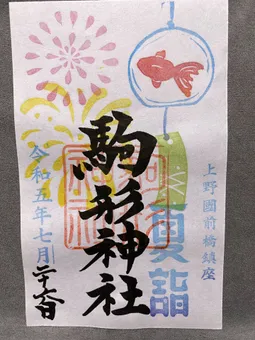 上野國前橋鎮座
夏詣
駒形神社
令和五年七月
日